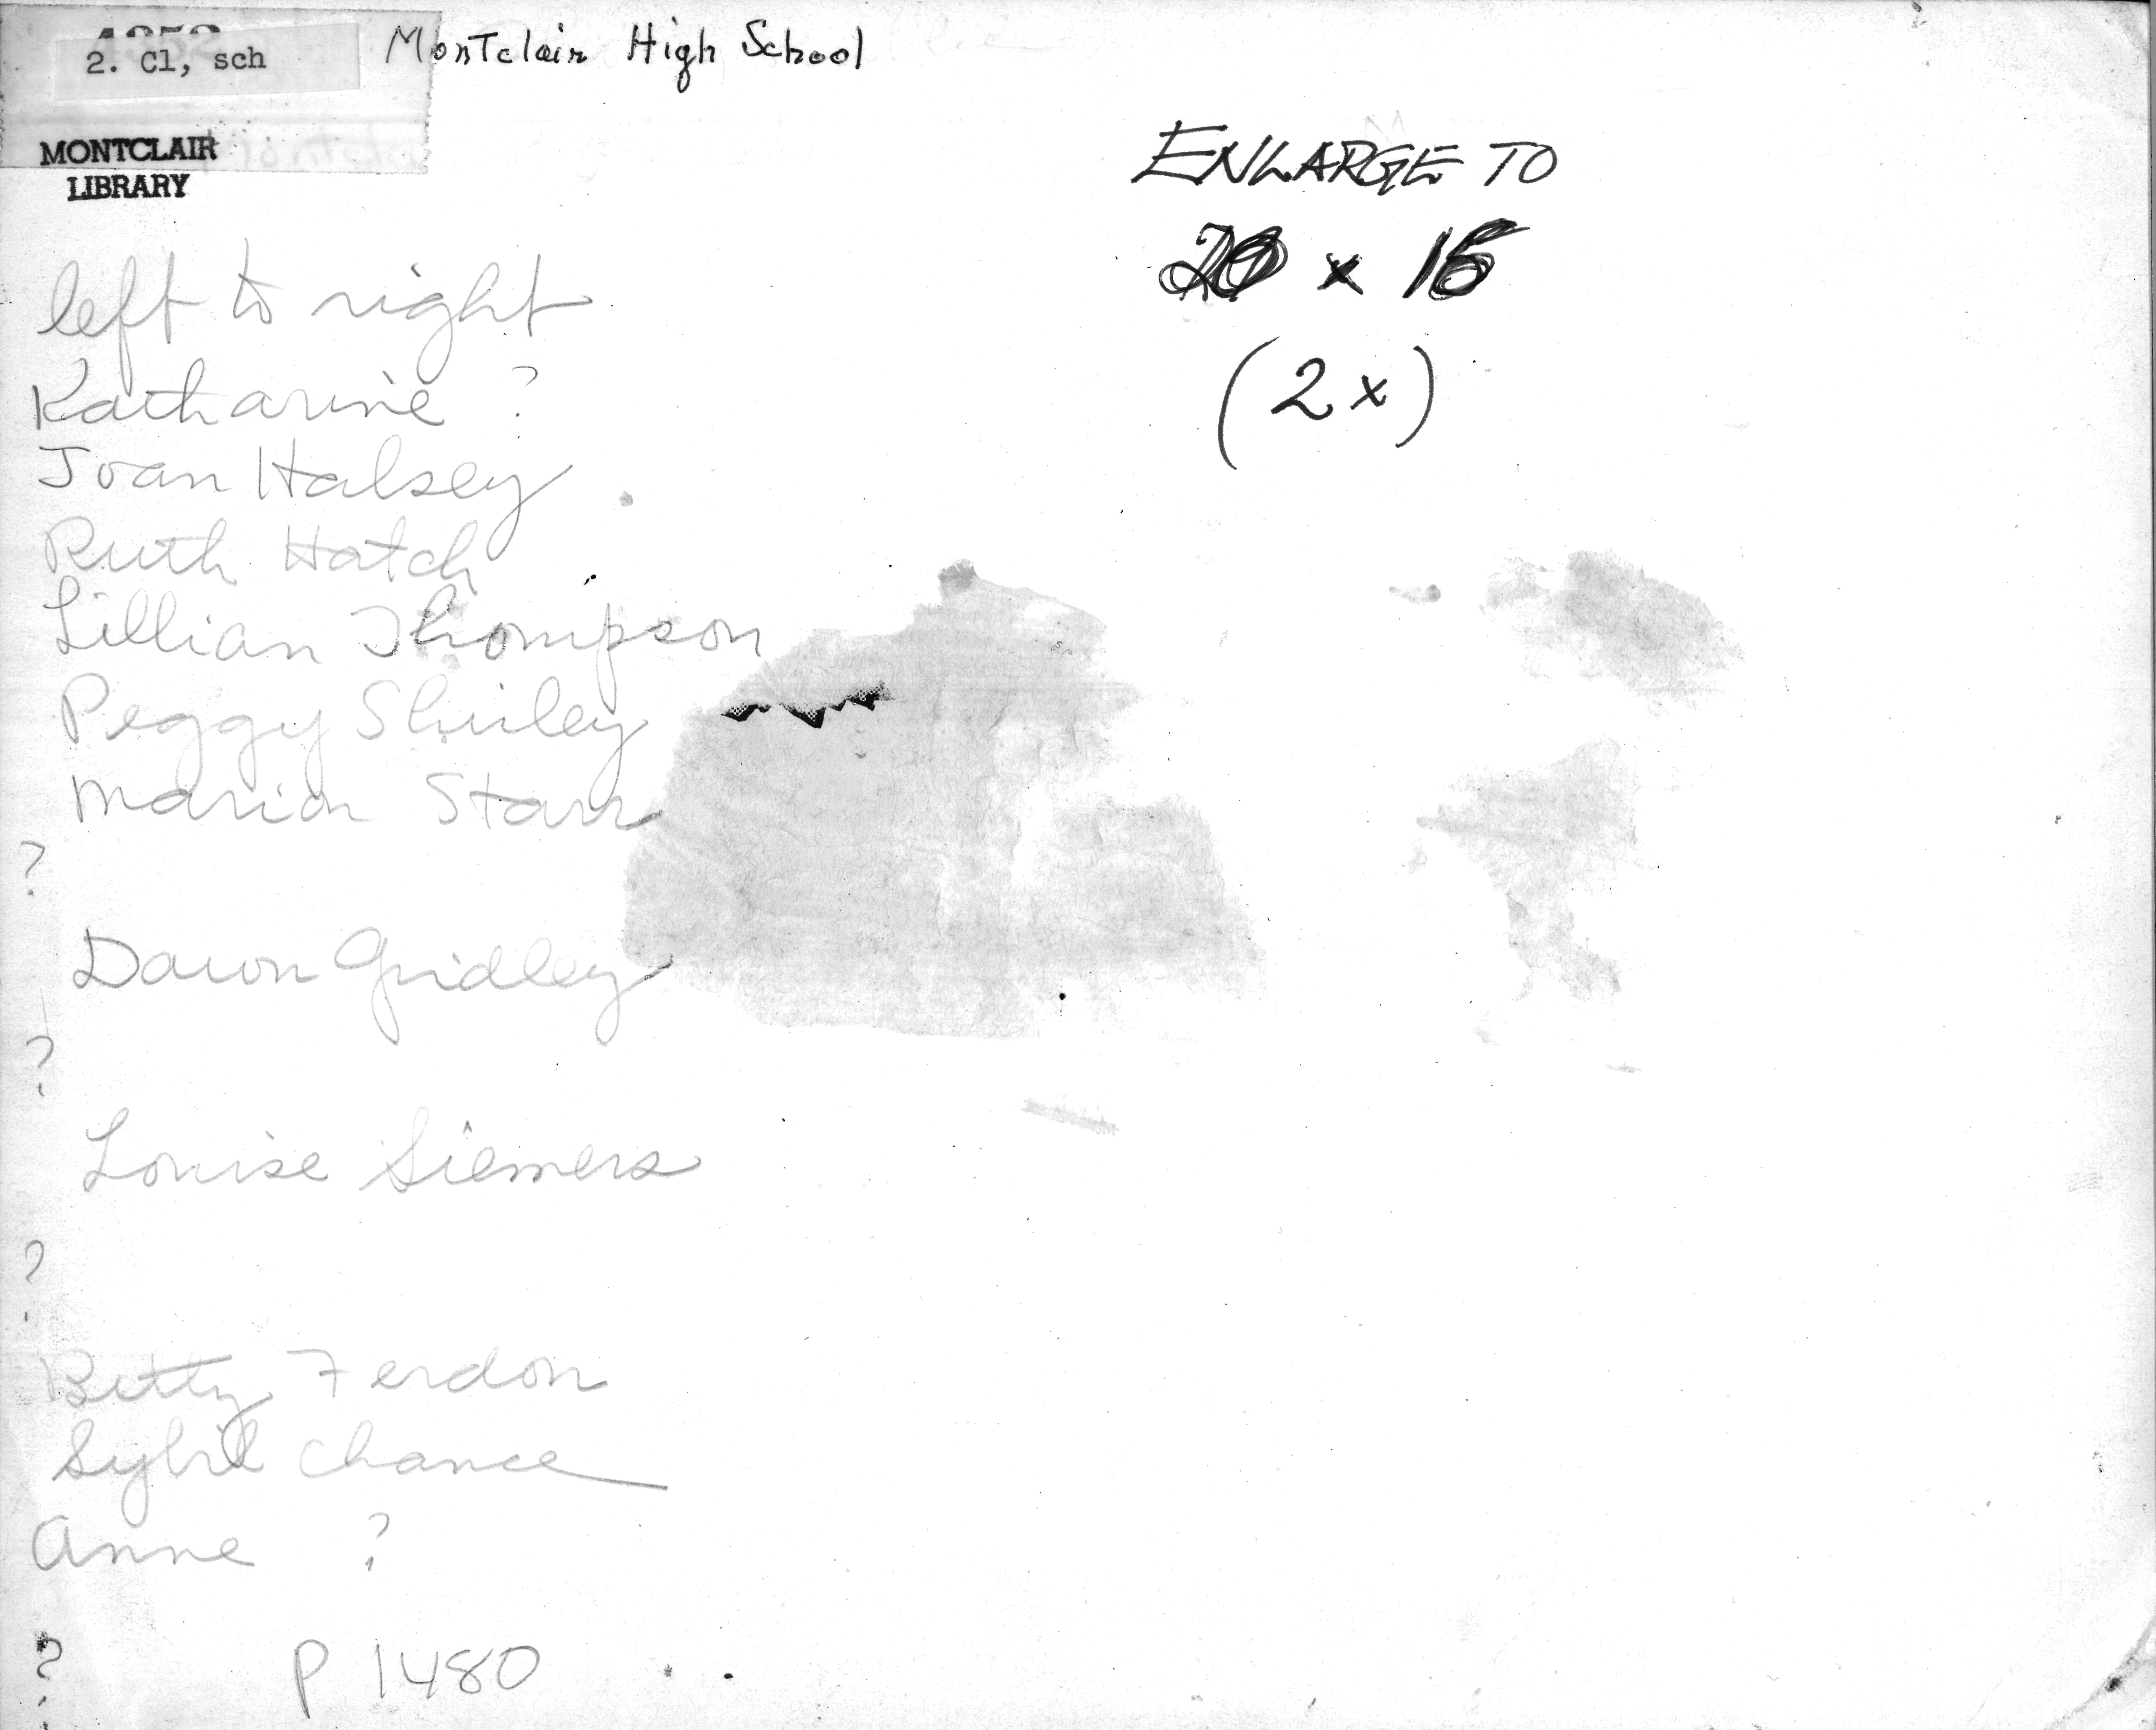 2. Cl, sch
Montclair High School
MONTCLAIR
LIBRARY
ENLARGE TO
20 x 16
(2x)
left to right
Katharine ?
Joan Halsey
Ruth Hatch
Lillian Thompson
Peggy Shirley
Marion Starr
?
Dawn Gridley
?
Louise Siemers
?
Betty Ferdon
Sybil Chance
Anne ?
?
P 1480